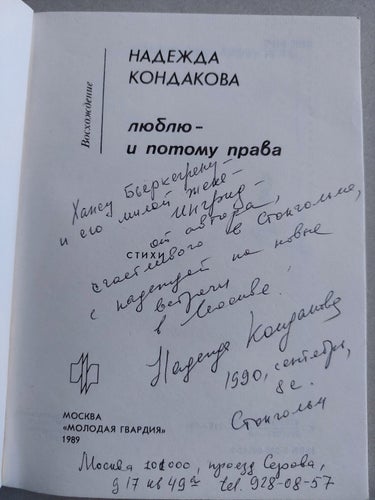 Восхождение
НАДЕЖДА
КОНДАКОВА
люблю –
и потому права
Хансу Бьёркегрену –
и его милой жене –
Ингрид –
от автора,
счастливого в Стокгольме,
СТИХИ
с надеждой на новые
встречи
в Москве.
Надежда Кондакова
1990, сентябрь,
8е.
Стокгольм
МОСКВА
«МОЛОДАЯ ГВАРДИЯ»
1989
Москва 101000, проезд Серова,
д 17 кв 49а tel. 928-08-57